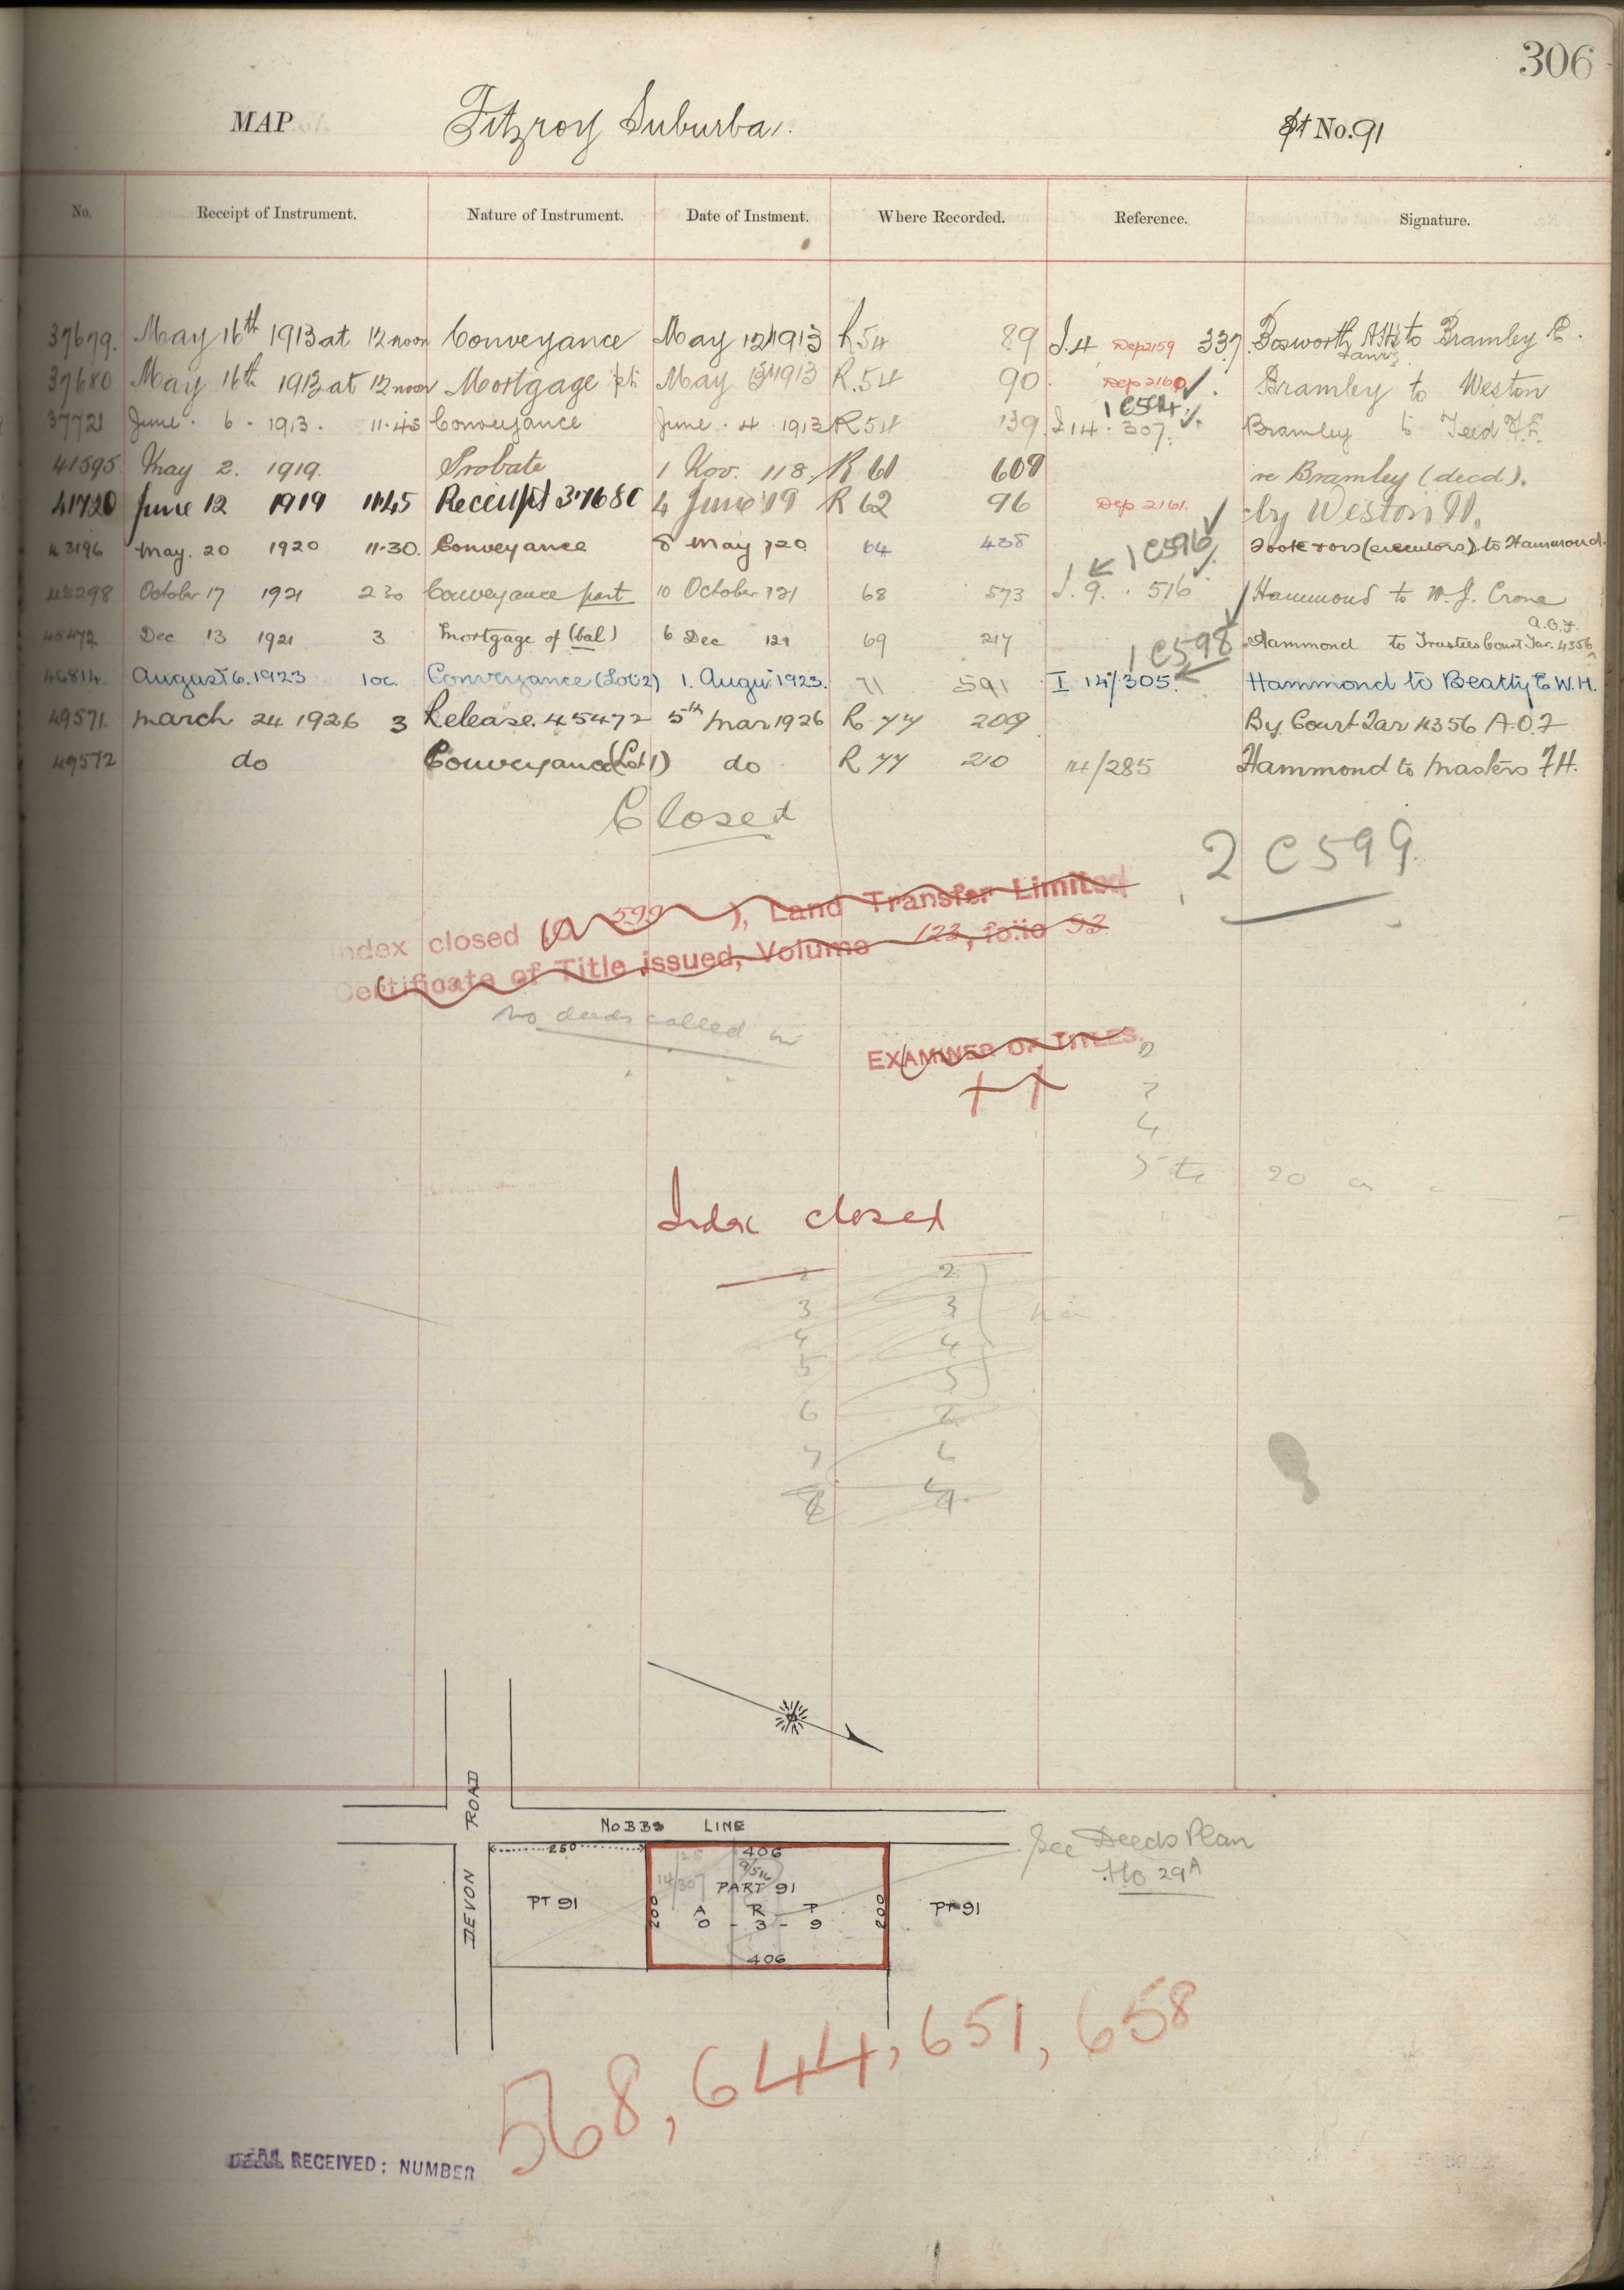 306
MAP Fitzroy Suburba . pt No. 91
No. Receipt of Instrument. Nature of Instrument. Date of Instment. Where Recorded. Reference. Signature.
37679. May 16th 1913 at 12 noon Conveyance May 12 1913 R.54 89 I.4 Dep 2159 337. Bosworth to Bramley E.
37680 May 16th 1913 at 12 noon Mortgage pt May 1913 R.54 90. Dep 2160 Bramley to Weston
1 C594
37721 June . 6 . 1913 . 11.45 Conveyance June . 4 1913 R 54 139. I 14 . 307. Bramley to Teed F.E.
41595. May 2. 1919. Probate 1 Nov. 118. R 61 609 re Bramley (decd).
41720 June 12 1919 11.45 Receipt 37680 4 June 19 R 62 96 Dep 2161. by Weston W.
43196 May. 20 1920 11.30. Conveyance 8 May 120 64 438 1 C596 (executors) to Hammond.
45298 October 17 1921 2.30 Conveyance part 10 October 121 68 573 I. 9. . 516 Hammond to W. J. Crone
45472 Dec 13 1921 3 Mortgage of (bal) 6 Dec 121 69 217 1 C598 Hammond to Trustees Court Tar. 4356 A.O.F.
46814. August 6. 1923 10 Conveyance (Lot 2) 1. Augu. 1923. 71 591 I 14/305. Hammond to Beatty E.W.H.
49571. March 24 1926 3 Release. 45472 5th Mar 1926 R 77 209 By Court Tar 4356 A.O.F
49572 do Conveyance (Lot 1) do R 77 210 14/285 Hammond to Masters F.H.
Closed
2 C599
Index closed (C 599 ), Land Transfer Limited
Certificate of Title issued, Volume 123, folio 93.
No deeds called in
EXAMINER OF TITLES.
2
3
4
5 to 20
Index closed
2 2
3 3
4 4
5 5
6
7 6
8
ROAD
NOBBS LINE
250 406
9/516
14/307 PART 91
PT 91 A R P PT 91
200 0 - 3 - 9 200
406
DEVON
See Deeds Plan
No 29A
568, 644, 651, 658
RECEIVED: NUMBER